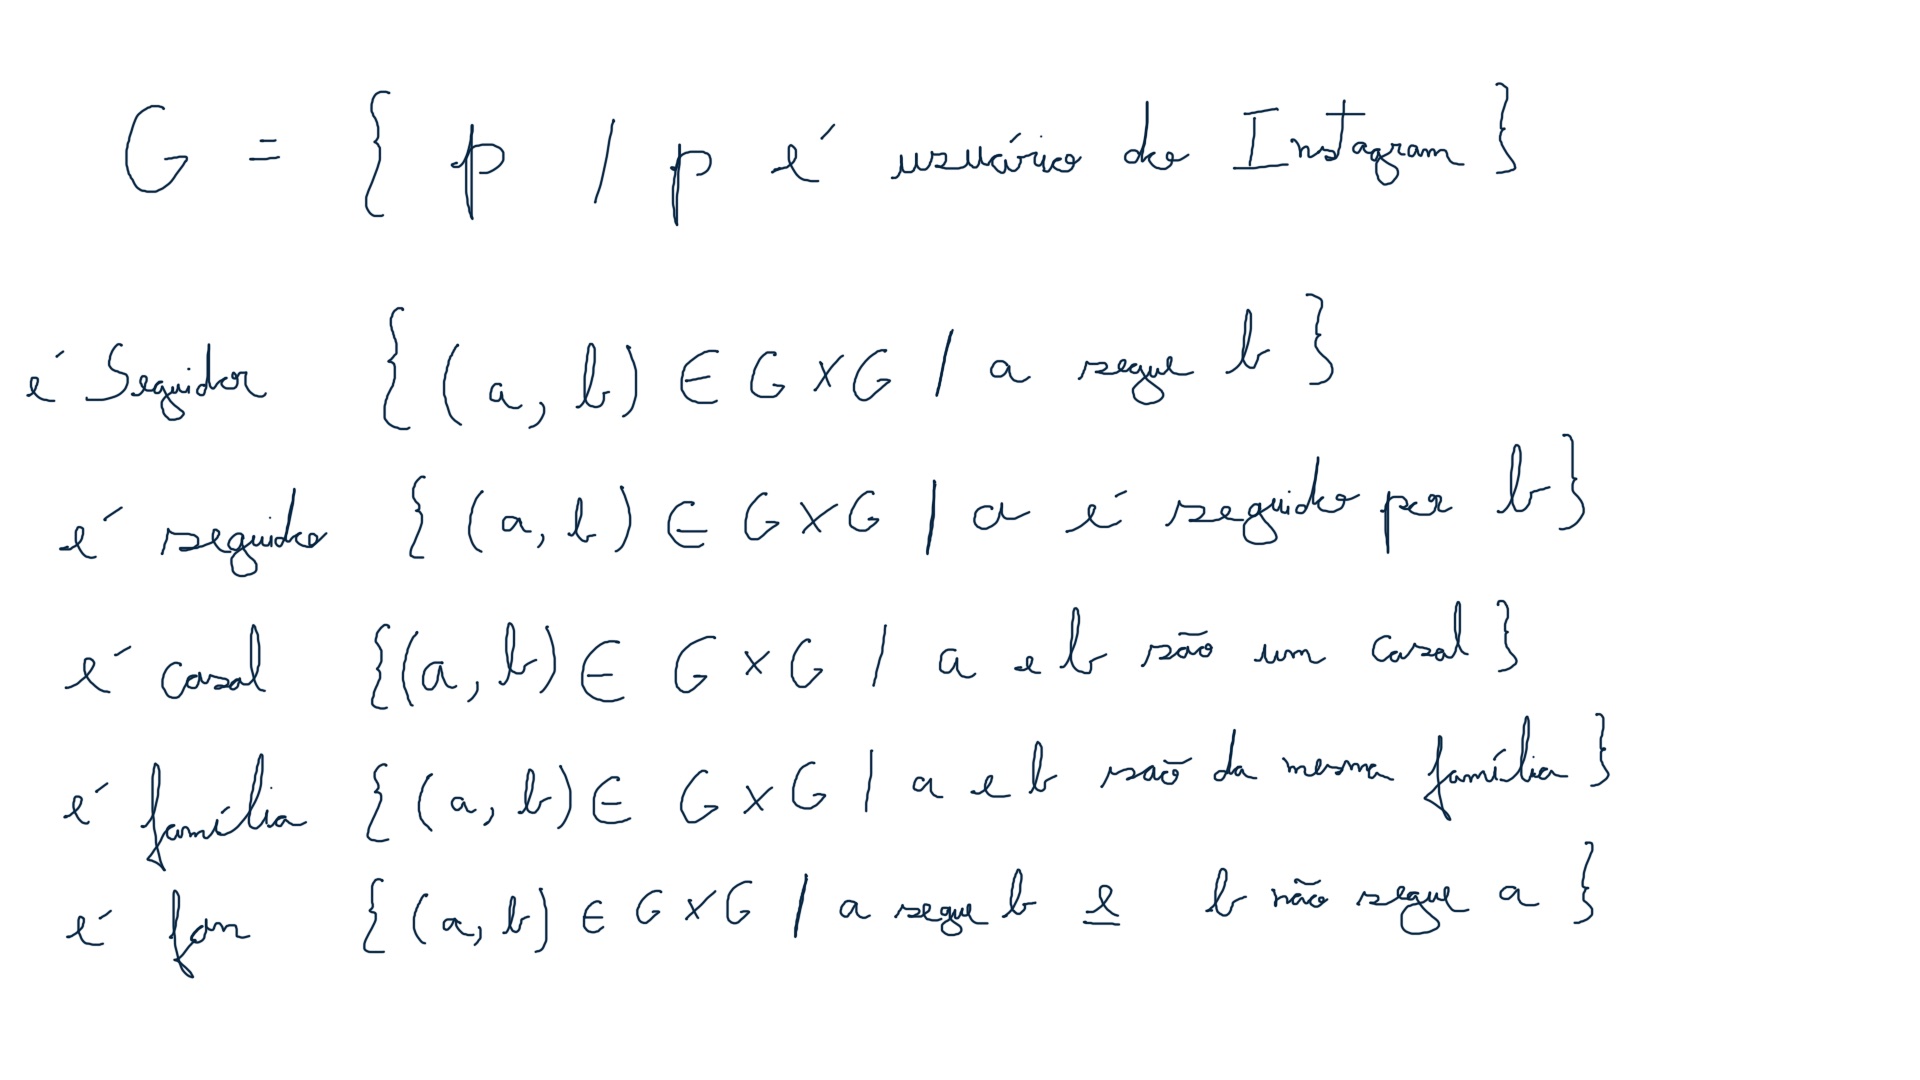 G = { p / p é usuário do Instagram }
é Seguidor { (a, b) ∈ G × G / a segue b }
é seguido { (a, b) ∈ G × G | a é seguido por b }
é casal { (a, b) ∈ G × G / a e b são um casal }
é família { (a, b) ∈ G × G | a e b saõ da mesma família }
é fan { (a, b) ∈ G × G / a segue b e b não segue a }